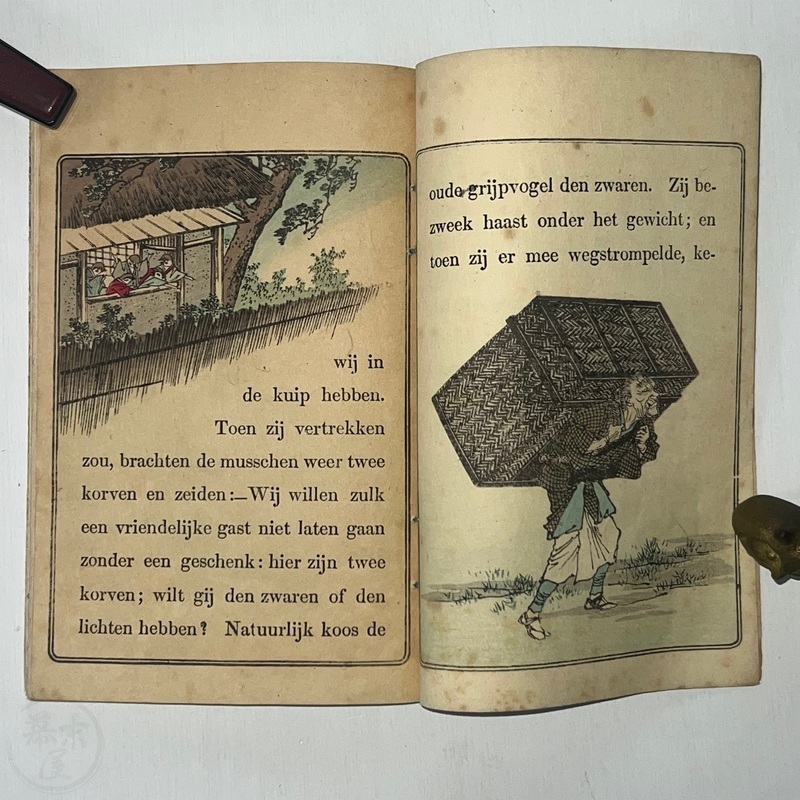 wij in
de kuip hebben.
Toen zij vertrekken
zou, brachten de musschen weer twee
korven en zeiden:—Wij willen zulk
een vriendelijke gast niet laten gaan
zonder een geschenk: hier zijn twee
korven; wilt gij den zwaren of den
lichten hebben? Natuurlijk koos de
oude grijpvogel den zwaren. Zij be-
zweek haast onder het gewicht; en
toen zij er mee wegstrompelde, ke-